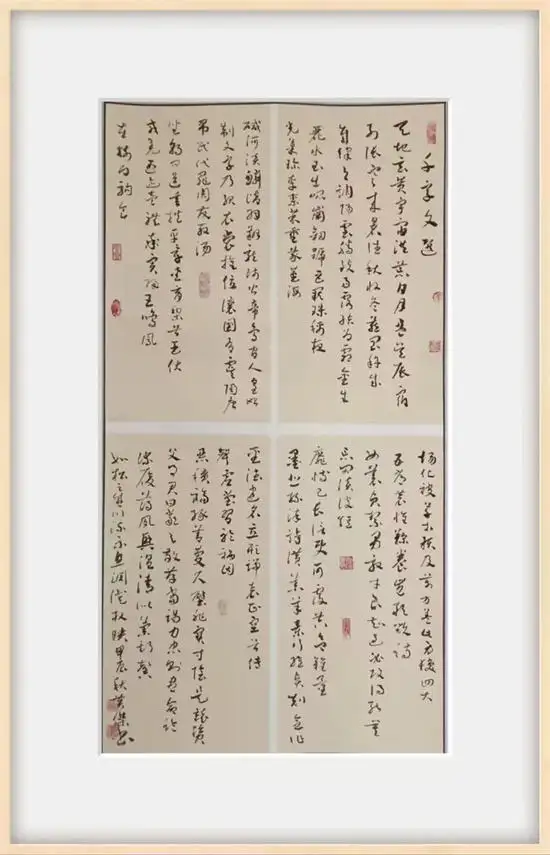 千字文選
天地玄黃宇宙洪荒日月盈昃辰宿
列張寒來暑往秋收冬藏閏餘成
歲律呂調陽雲騰致雨露結為霜金生
麗水玉出崑岡劍號巨闕珠稱夜
光菓珍李柰菜重芥薑海
鹹河淡鱗潛羽翔龍師火帝鳥官人皇始
制文字乃服衣裳推位讓國有虞陶唐
弔民伐罪周發殷湯
坐朝問道垂拱平章愛育黎首臣伏
戎羌遐邇壹體率賓歸王鳴鳳
在樹白駒食
場化被草木賴及萬方蓋此身髮四大
五常恭惟鞠養豈敢毀傷
女慕貞潔男效才良知過必改得能莫
忘罔談彼短
靡恃己長信使可覆器欲難量
墨悲絲染詩讚羔羊景行維賢剋念作
聖德建名立形端表正空谷傳
聲虛堂習聽禍因
惡積福緣善慶尺璧非寶寸陰是競資
父事君曰嚴與敬孝當竭力忠則盡命臨
深履薄夙興溫凊似蘭斯馨
如松之盛川流不息淵澄取映甲辰秋黃傑書